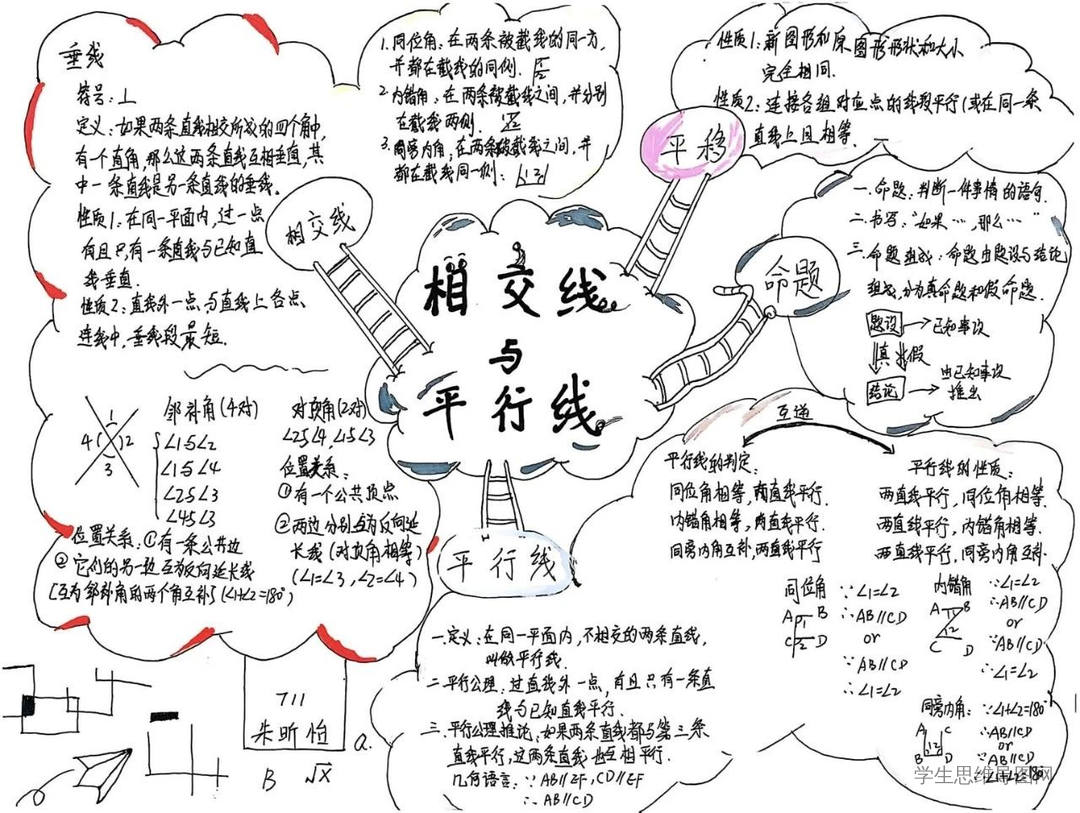 垂线
符号:⊥
定义:如果两条直线相交所成的四个角中,
有一个直角,那么这两条直线互相垂直,其
中一条直线是另一条直线的垂线。
性质1:在同一平面内,过一点
有且只有一条直线与已知直
线垂直.
性质2:直线外一点,与直线上各点
连线中,垂线段最短.
1
4 2
3
邻补角(4对)
∠1与∠2
∠1与∠4
∠2与∠3
∠4与∠3
位置关系:①有一条公共边
②它们的另一边互为反向延长线
[互为邻补角的两个角互补](∠1+∠2=180°)
对顶角(2对)
∠2与∠4,∠1与∠3
位置关系:
①有一个公共顶点
②两边分别互为反向延
长线(对顶角相等)
(∠1=∠3,∠2=∠4)
相交线
1.同位角:在两条被截线的同一方,
并都在截线的同侧.
2.内错角:在两条被截线之间,并分别
在截线两侧.
3.同旁内角,在两条被截线之间,并
都在截线同一侧:
相交线
与
平行线
平移
性质1:新图形和原图形形状和大小
完全相同.
性质2:连接各组对应点的线段平行(或在同一条
直线上且相等.
命题
一.命题:判断一件事情的语句.
二.书写:“如果…,那么…”
三.命题组成:命题由题设与结论
组成,分为真命题和假命题.
题设→已知事项
真 假
结论→由已知事项
推出
互逆
平行线的判定:
同位角相等,两直线平行.
内错角相等,两直线平行.
同旁内角互补,两直线平行
平行线的性质:
两直线平行,同位角相等.
两直线平行,内错角相等.
两直线平行,同旁内角互补.
同位角
A 1 B
C 2 D
∵∠1=∠2
∴AB∥CD
or
∵AB∥CD
∴∠1=∠2
内错角
A B
1 2
C D
∵∠1=∠2
∴AB∥CD
or
∵AB∥CD
∴∠1=∠2
同旁内角:
A C
1 2
B D
∵∠1+∠2=180°
∴AB∥CD
or
∵AB∥CD
∴∠1+∠2=180°
平行线
一.定义:在同一平面内,不相交的两条直线,
叫做平行线.
二.平行公理.过直线外一点,有且只有一条直
线与已知直线平行.
三.平行公理推论,如果两条直线都与第三条
直线平行,这两条直线也互相平行.
几何语言:∵AB∥EF,CD∥EF
∴AB∥CD
711
朱昕怡
a.
B √x
学生思维导图网